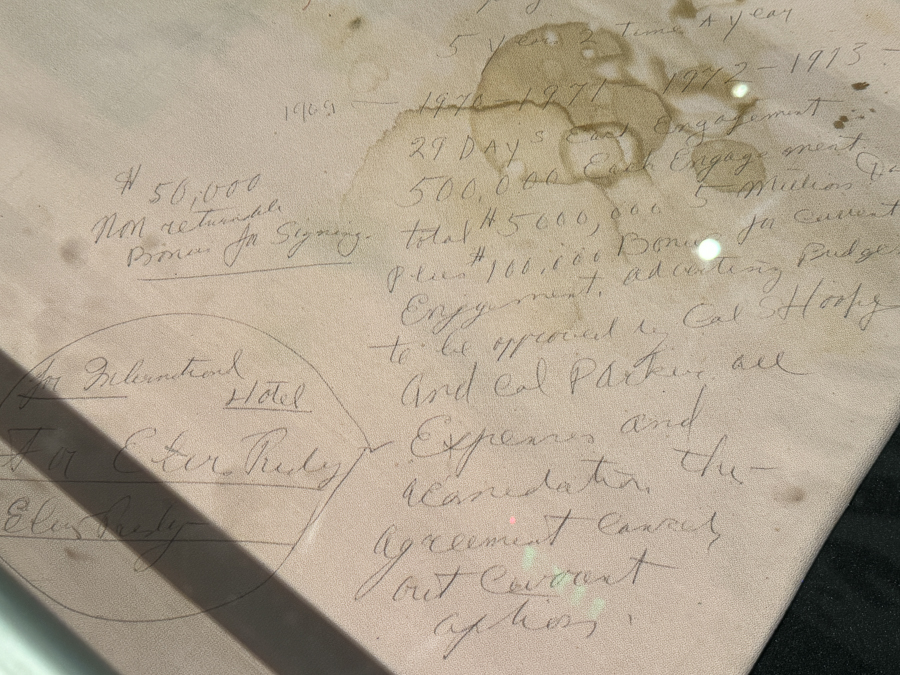 5 Years 2 Time A Year
1969 — 1970 - 1971 - 1972 - 1973 -
29 DAys Each Engagement
500,000 Each Engagement
total $5000,000 5 Million
plus $100,000 Bonus for Current
Engagement. advertising Budget
to be approved by Col
and Col Parker. all
Expenses and
the
agreement cancels
out Current
options.
$ 50,000
Non returnable
Bonus for Signing.
for International
Hotel
For Elvis Presley
Elvis Presley